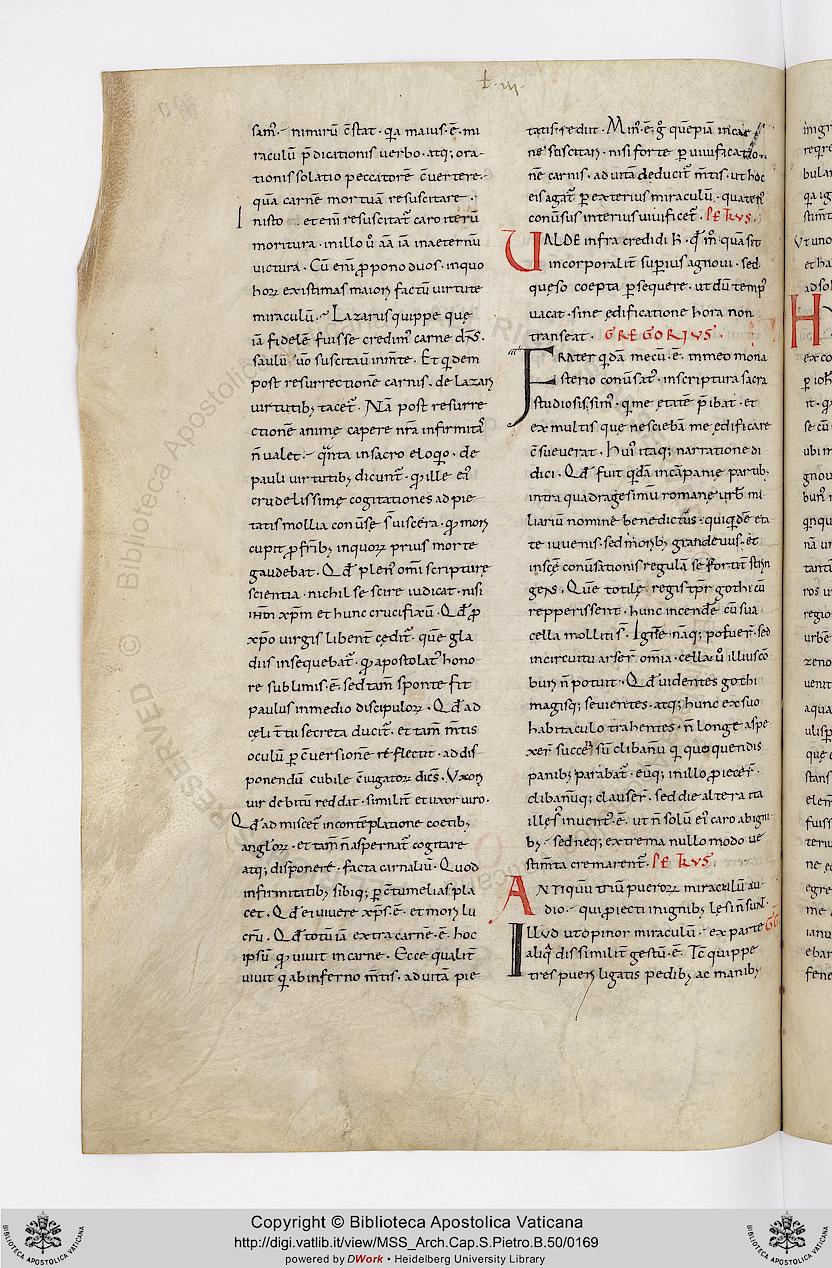 L. III.
sam̄. nimirū c̄stat. q̇a maius. ē. mi
raculū p̄dicationis uerbo. atq; ora-
tionis solatio peccatorē c̄uertere.
quā carnē mortuā resuscitare.
In isto et eni resuscitat̄ caro iterū
moritura. in illo ū aīa in aeternū
uictura. Cū eni propono duos. in quo
horꝝ existimas maiori factū uirtute
miraculū. Lazarus quippe quę
iā fidelē fuisse credimꝰ carne dn̄s.
saulū uo suscitauit in m̄te. Et quidem
post resurrectionē carnis. de lazari
uirtutibꝫ tacet̄. Nā post resurre
ctionē animę capere nr̄a infirmitas
n̄ ualet. quanta in sacro eloquio. de
pauli uirtutibꝫ dicunt̄. qđ ille eiꝰ
crudelissimę cogitationes ad pie
tatis mollia conuerse s̄ uiscera. qđ mori
cupit p fr̄ibꝫ in quoꝝ prius morte
gaudebat. Qđ plenꝰ omi scripturę
scientia. nichil se scire iudicat. nisi
ihm xpm et hunc crucifixū. Qđ p
xpo uirgis libent̄ cedit̄. quē gla
diis insequebat̄. qđ apostolatꝰ hono
re sublimis. ē. sed tam̄ sponte fit
paulus in medio discipuloꝝ. Qđ ad
celi t̄tii secreta ducit̄. et tam̄ m̄tis
oculū p c̄uersionē reflectit. ad dis
ponendū cubile c̄iugatoꝝ dic̄s. Vxori
uir debitū reddat. similit̄ et uxor uiro.
Qđ admiscet̄ in contēplatione coetibꝫ
angloꝝ. et tam̄ n̄ aspernat̄ cogitare
atq; disponere. facta carnaliū. Quod
infirmitatibꝫ sibiq; p c̄tumelias pla
cet. Qđ ei uiuere xp̄s. ē. et mori lu
crū. Qđ totū iā extra carnē. ē. hoc
ipsū qđ uiuit in carne. Ecce qualit̄
uiuit qui ab inferno m̄tis. ad uitā pie
tatis rediit. Minꝰ. ē. g̊ quēpiā in car
ne suscitari. nisi forte p uiuificationē
carnis. ad uitā deducat̄ m̄tis. ut hoc
ei agat̄ p exterius miraculū. quatenꝰ
conuersus interius uiuificet̄. PETRVS.
VALDE infra credidi h̄. qđ m̊ quā sit
incorporalit̄ superius agnoui. sed
quęso coepta p sequere. ut dū tempꝰ
uacat. sine ędificatione hora non
transeat. GREGORIVS.
FRATER quidā mecū. ē. in meo mona
sterio conuersatꝰ. in scriptura sacra
studiosissimꝰ. qui me ętate p̄ibat. et
ex multis quę nesciebā me ędificare
c̄sueuerat. Huiꝰ itaq; narratione di
dici. Qđ fuit quidā in cāpanię partibꝫ
intra quadragesimū romanę urbis mi
liariū nomine benedictus. qui quidē eta
te iuuenis. sed moribꝫ grandeuus. et
in sc̄ę conuersationis regula se fortit̄ strin
gens. Quē totilę regis tp̄r gothi cū
repperissent. hunc incendere cū sua
cella moliti s̄. Ignē nāq; posuer̄. sed
in circuitu arser̄ omīa. cella ū illius cō
buri n̄ potuit. Qđ uidentes gothi
magisq; seuientes. atq; hunc ex suo
habitaculo trahentes. n̄ longe aspe
xer̄ succensū clibanū qui quoquendis
panibꝫ parabat̄. eūq; in illo proiecer̄.
clibanūq; clauser̄. sed die altera ita
illesꝰ inuentꝰ. ē. ut n̄ solū eiꝰ caro ab igni
bꝫ. sed neq; extrema nullo modo ue
stim̄ta cremarent̄. PETRVS.
ANTIQVū triū pueroꝝ miraculū au
dio. qui proiecti in ignibꝫ lesi n̄ sunt.
ILLVD ut opinor miraculū. ex parte
aliqua dissimilit̄ gestū. ē. Tc̄ quippe
tres pueri ligatis pedibꝫ ac manibꝫ
Copyright © Biblioteca Apostolica Vaticana
http://digi.vatlib.it/view/MSS_Arch.Cap.S.Pietro.B.50/0169
powered by DWork • Heidelberg University Library